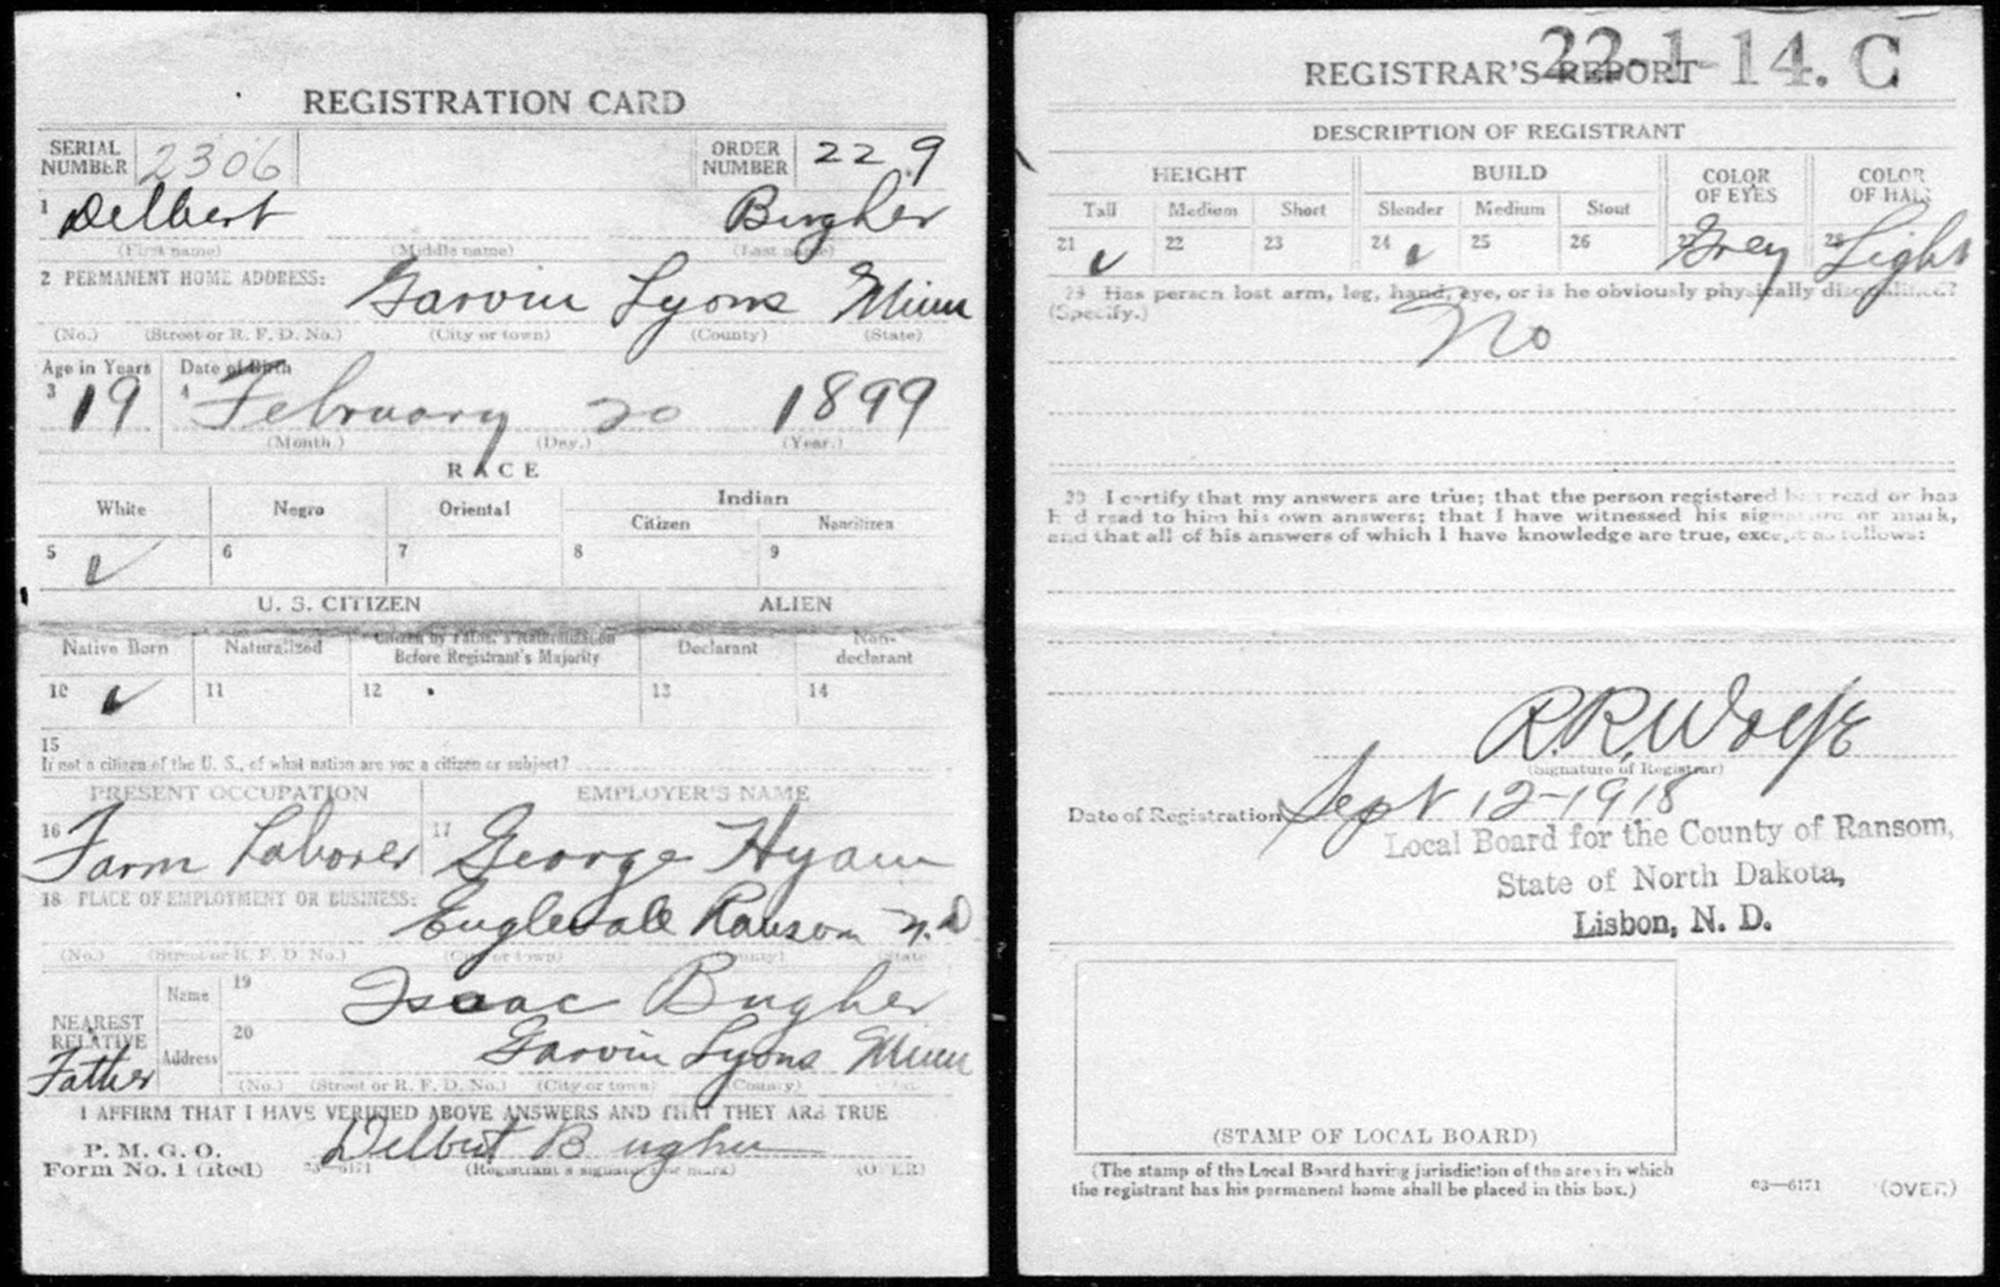 REGISTRATION CARD
SERIAL NUMBER 2306 ORDER NUMBER 229
1 Delbert Bugher
(First name) (Middle name) (Last name)
2 PERMANENT HOME ADDRESS:
Garvin Lyons Minn
(No.) (Street or R. F. D. No.) (City or town) (County) (State)
Age in Years Date of Birth
3 19 4 February 20 1899
(Month.) (Day.) (Year.)
RACE
White Negro Oriental Indian
Citizen Noncitizen
5 ✓ 6 7 8 9
U. S. CITIZEN ALIEN
Native Born Naturalized Citizen by Father's Naturalization Before Registrant's Majority Declarant Non-declarant
10 ✓ 11 12 13 14
15
If not a citizen of the U. S., of what nation are you a citizen or subject?
PRESENT OCCUPATION EMPLOYER'S NAME
16 Farm Laborer 17 George Hyam
18 PLACE OF EMPLOYMENT OR BUSINESS:
Englevale Ransom N.D
(No.) (Street or R. F. D. No.) (City or town) (County) (State
NEAREST RELATIVE Father
Name 19 Isaac Bugher
Address 20 Garvin Lyons Minn
(No.) (Street or R. F. D. No.) (City or town) (County)
I AFFIRM THAT I HAVE VERIFIED ABOVE ANSWERS AND THAT THEY ARE TRUE
P. M. G. O.
Form No. 1 (Red) 03—6171 Delbert Bugher
(Registrant's signature or mark) (OVER)
22-1-14. C
REGISTRAR'S REPORT
DESCRIPTION OF REGISTRANT
HEIGHT BUILD COLOR OF EYES COLOR OF HAIR
Tall Medium Short Slender Medium Stout
21 ✓ 22 23 24 ✓ 25 26 27 Grey 28 Light
29 Has person lost arm, leg, hand, eye, or is he obviously physically disqualified?
(Specify.) No
30 I certify that my answers are true; that the person registered has read or has
had read to him his own answers; that I have witnessed his signature or mark,
and that all of his answers of which I have knowledge are true, except as follows:
R.R. Wolfe
(Signature of Registrar)
Date of Registration Sept 12-1918
Local Board for the County of Ransom,
State of North Dakota,
Lisbon, N. D.
(STAMP OF LOCAL BOARD)
(The stamp of the Local Board having jurisdiction of the area in which
the registrant has his permanent home shall be placed in this box.)
03—6171 (OVER)